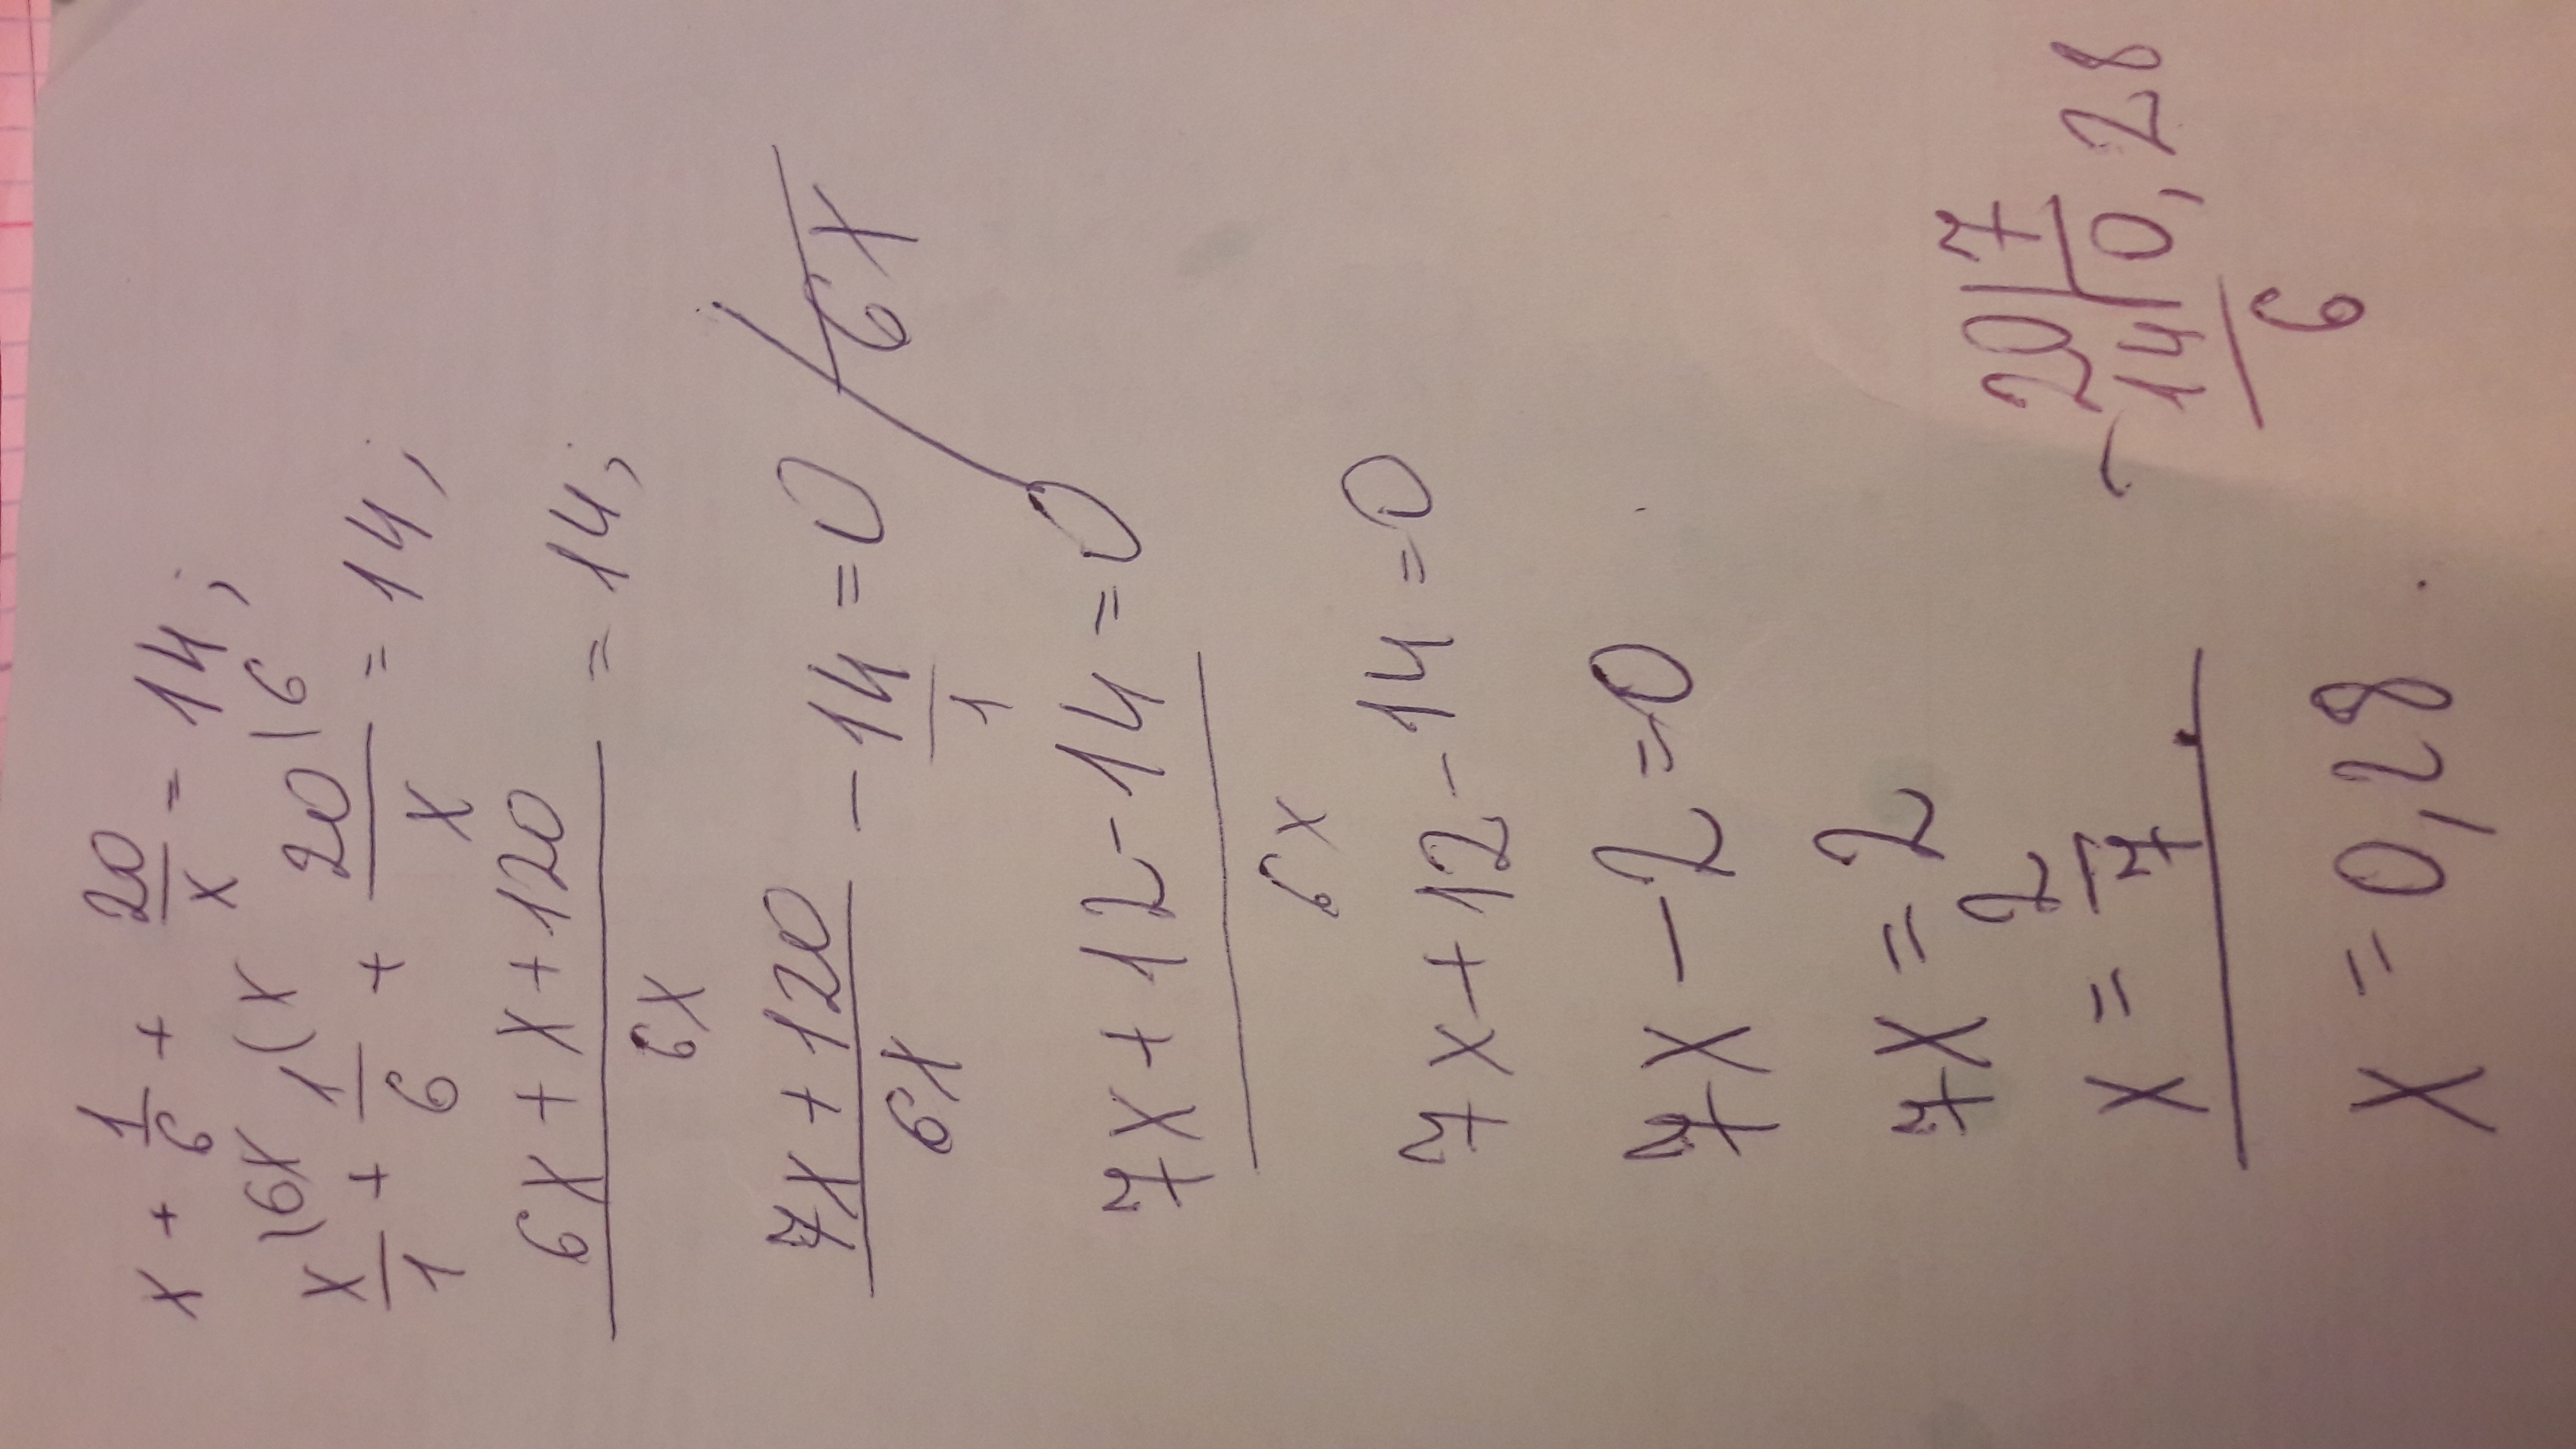 x + 1/6 + 20/x = 14;
x/1 |6x + 1/6 (x + 20/x |6 = 14;
6x + x + 120 / 6x = 14;
7x + 120 / 6x - 14/1 = 0 / 6x
7x + 12 - 14 / 6x = 0
7x + 12 - 14 = 0
7x - 2 = 0
7x = 2
x = 2/7.
x = 0,28.
20 | 7
- 14 | 0,28
6